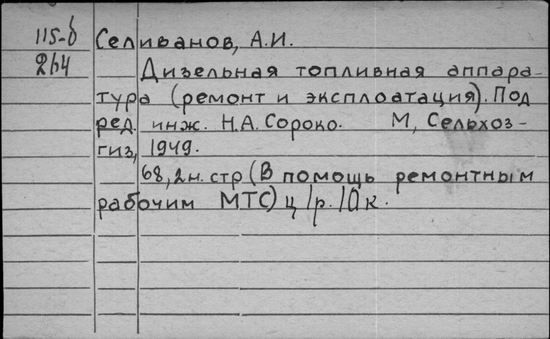 115-б Селиванов, А.И.
264
Дизельная топливная аппара-
тура (ремонт и эксплоатация). Под
ред. инж. Н.А. Сороко. М, Сельхоз-
гиз, 1949.
68,2н. стр (В помощь ремонтным
рабочим МТС) ц 1р. 10к.